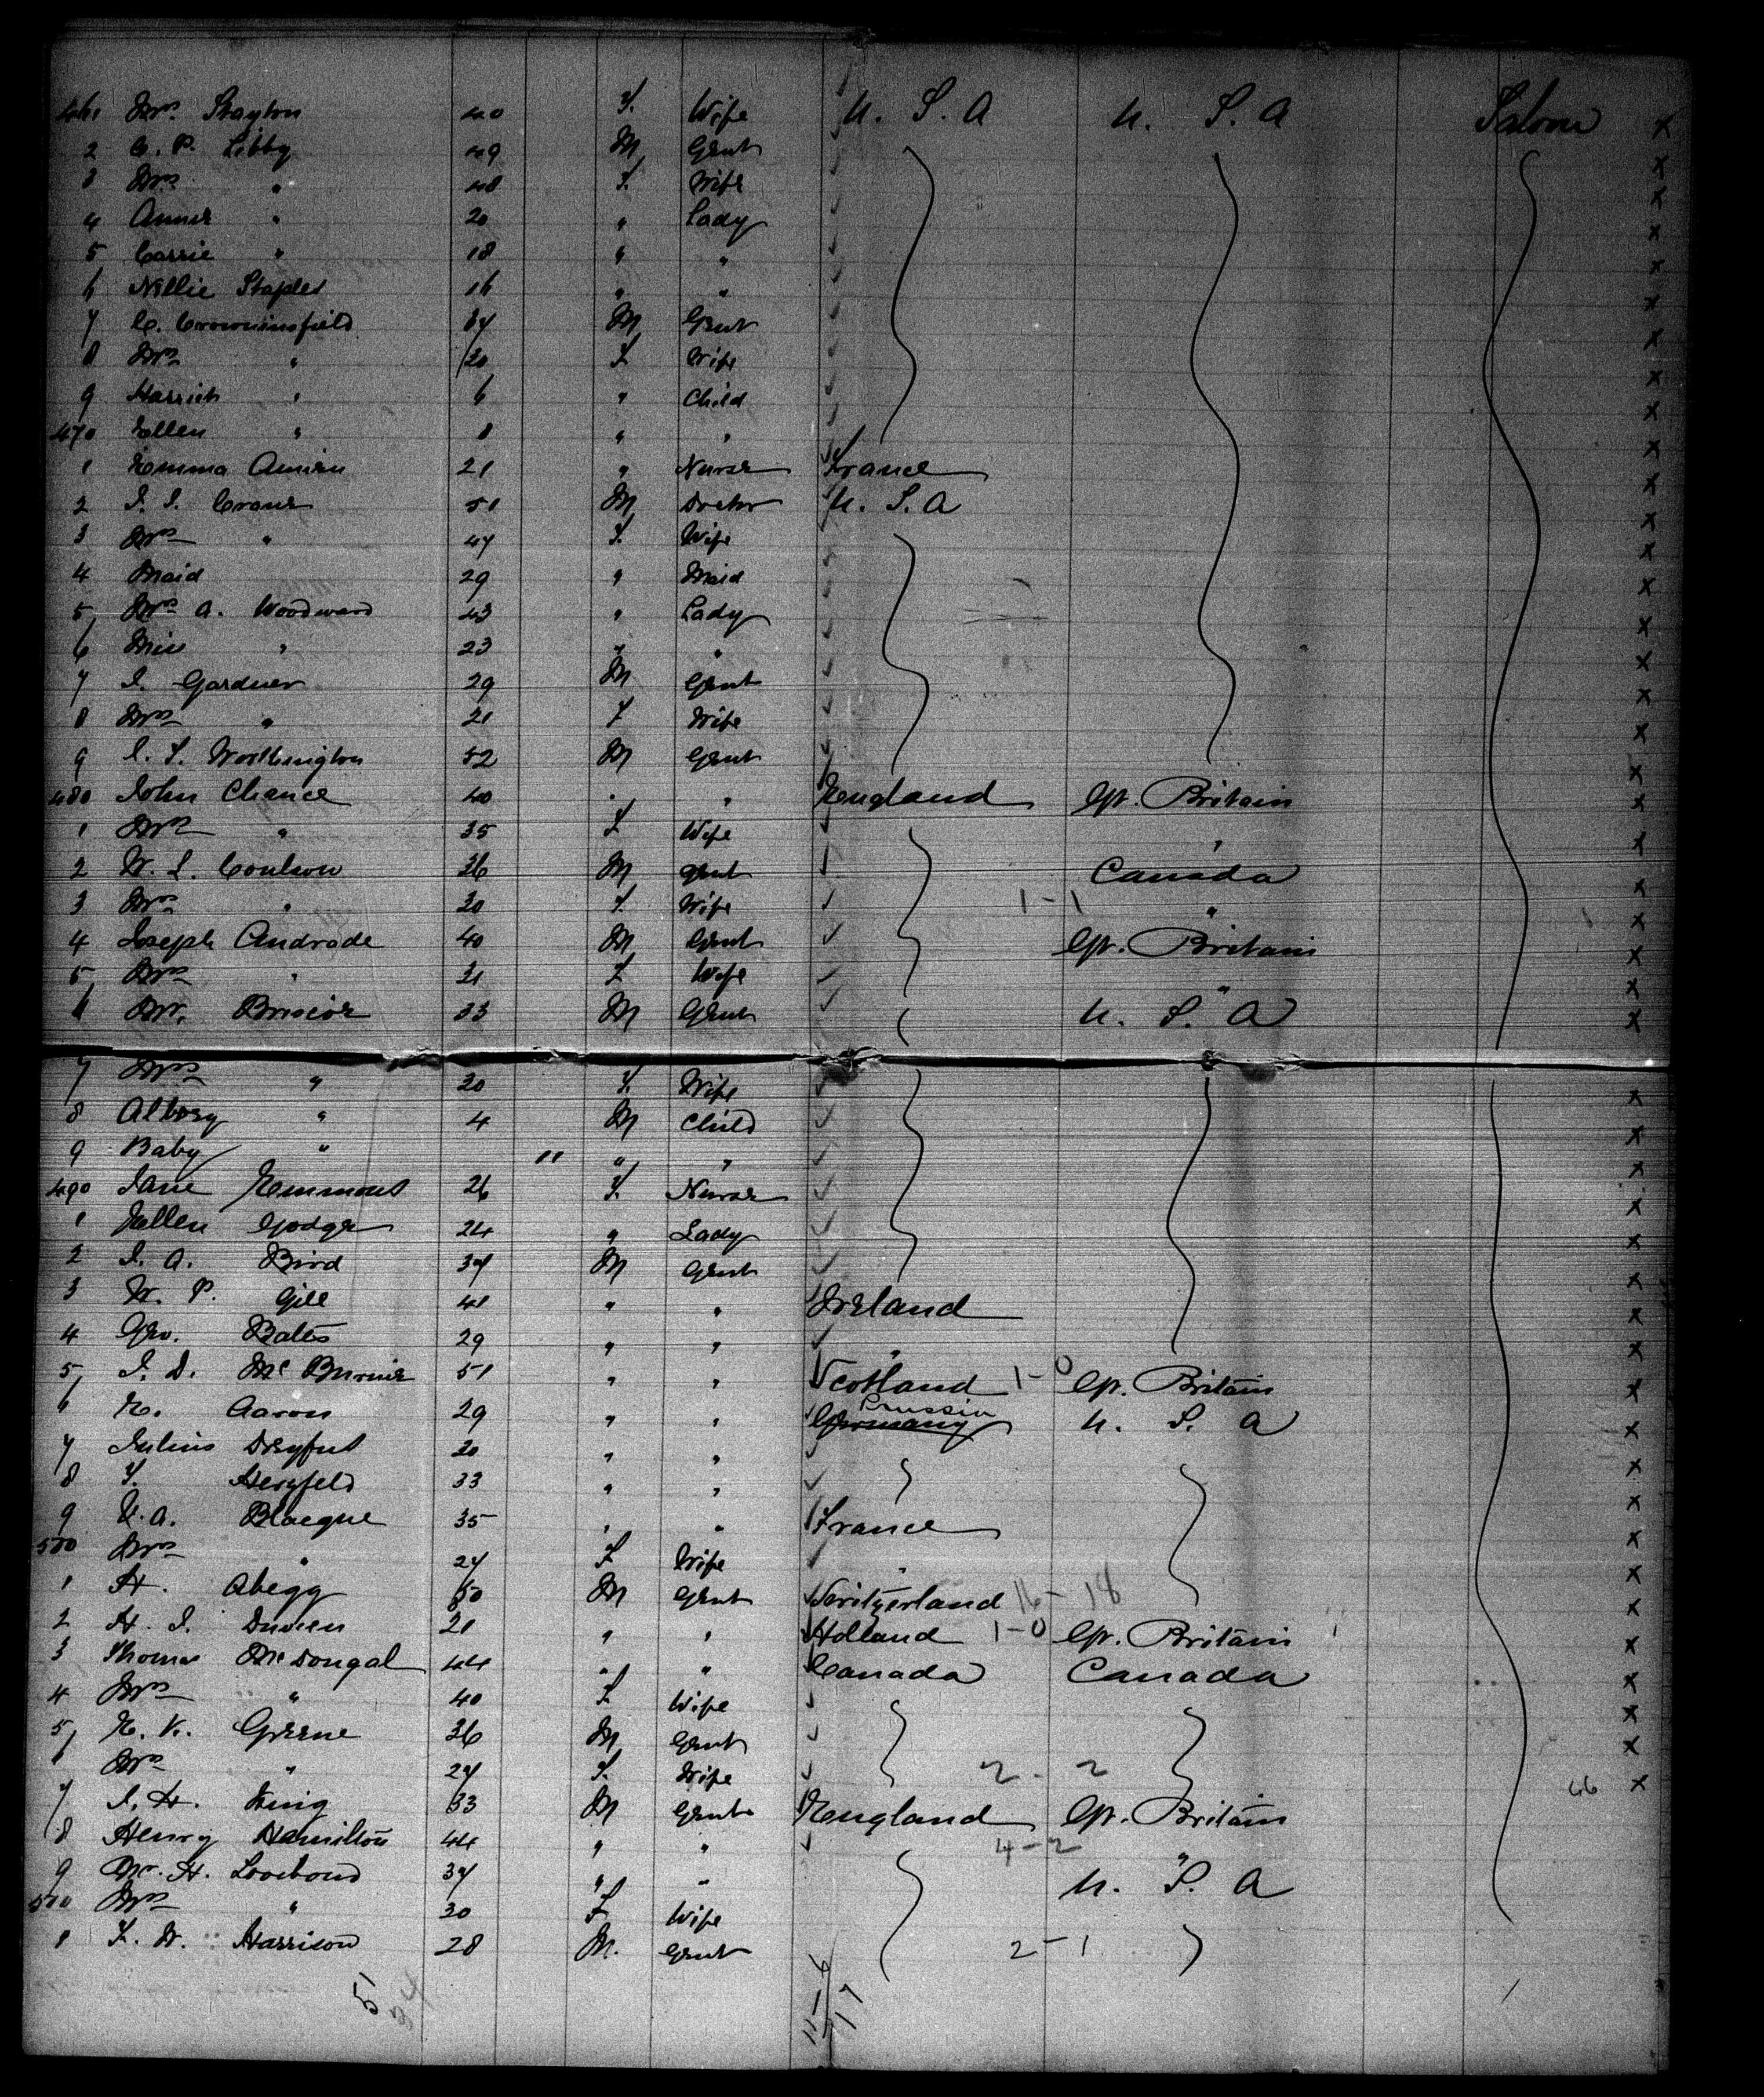 461 Mrs Stayton 40 F. Wife U. S. A U. S. A Saloon x
2 C. P. Libby 49 M Gent x
3 Mrs " 48 F. Wife x
4 Annie " 20 " Lady x
5 Carrie " 18 " " x
6 Nellie Staples 16 " " x
7 C. Crowninsfield 37 M Gent x
8 Mrs " 30 F Wife x
9 Harriet " 6 " Child x
470 Ellen " 8 " " x
1 Emma Amien 21 " Nurse France x
2 J. J. Crane 51 M Doctor U. S. A x
3 Mrs " 47 F. Wife x
4 Maid 29 " Maid x
5 Mrs A. Woodward 43 " Lady x
6 Miss " 23 " " x
7 J. Gardner 29 M Gent x
8 Mrs " 21 F Wife x
9 Worthington 52 M Gent x
480 John Chance 40 " " England Gt. Britain x
1 Mrs " 35 F Wife " x
2 W. L. Coulson 36 M Gent Canada x
3 Mrs " 30 F. Wife 1-1 " x
4 Joseph Andrade 40 M Gent Gt. Britain x
5 Mrs " 31 F Wife " x
6 Mr. Briscoe 33 M Gent U. S. A x
7 Mrs " 30 F. Wife x
8 " 4 M Child x
9 Baby " " " " x
490 Jane Emmons 26 F. Nurse x
1 Ellen Godge 24 " Lady x
2 J. A. Bird 37 M Gent x
3 W. P. Gill 41 " " Ireland x
4 Geo. Bates 29 " " " x
5 J. D. Mc Burnie 51 " " Scotland 1-0 Gt. Britain x
6 E. Aaron 29 " " Germany Prussia U. S. A x
7 Julius Dreyfus 20 " " x
8 F. Herzfeld 33 " " x
9 Blacque 35 " " France x
500 Mrs " 27 F Wife " x
1 H. Abegg 50 M Gent Switzerland 16-18 x
2 H. J. Duveen 21 " " Holland 1-0 Gt. Britain x
3 Thomas McDougal 44 " " Canada Canada x
4 Mrs " 40 F Wife x
5 E. V. Greene 36 M Gent x
6 Mrs " 27 F. Wife 2-2 x
7 J. H. King 33 M Gent England Gt. Britain 46 x
8 Henry Hamilton 44 " " 4-2 "
9 Mr. H. Loveboud 37 " " U. S. A
510 Mrs " 30 F Wife
1 F. W. Harrison 28 M. Gent 2-1
51
11-6
17